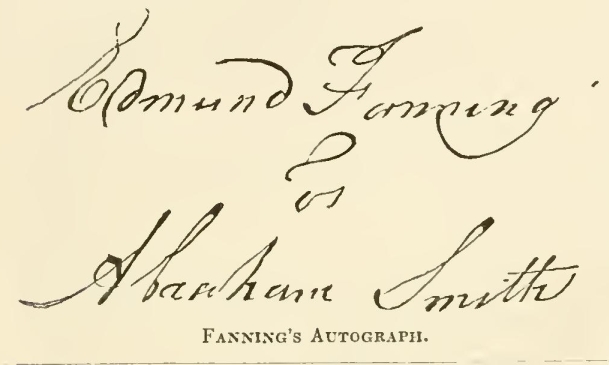 Edmund Fanning
to
Abraham Smith
FANNING'S AUTOGRAPH.